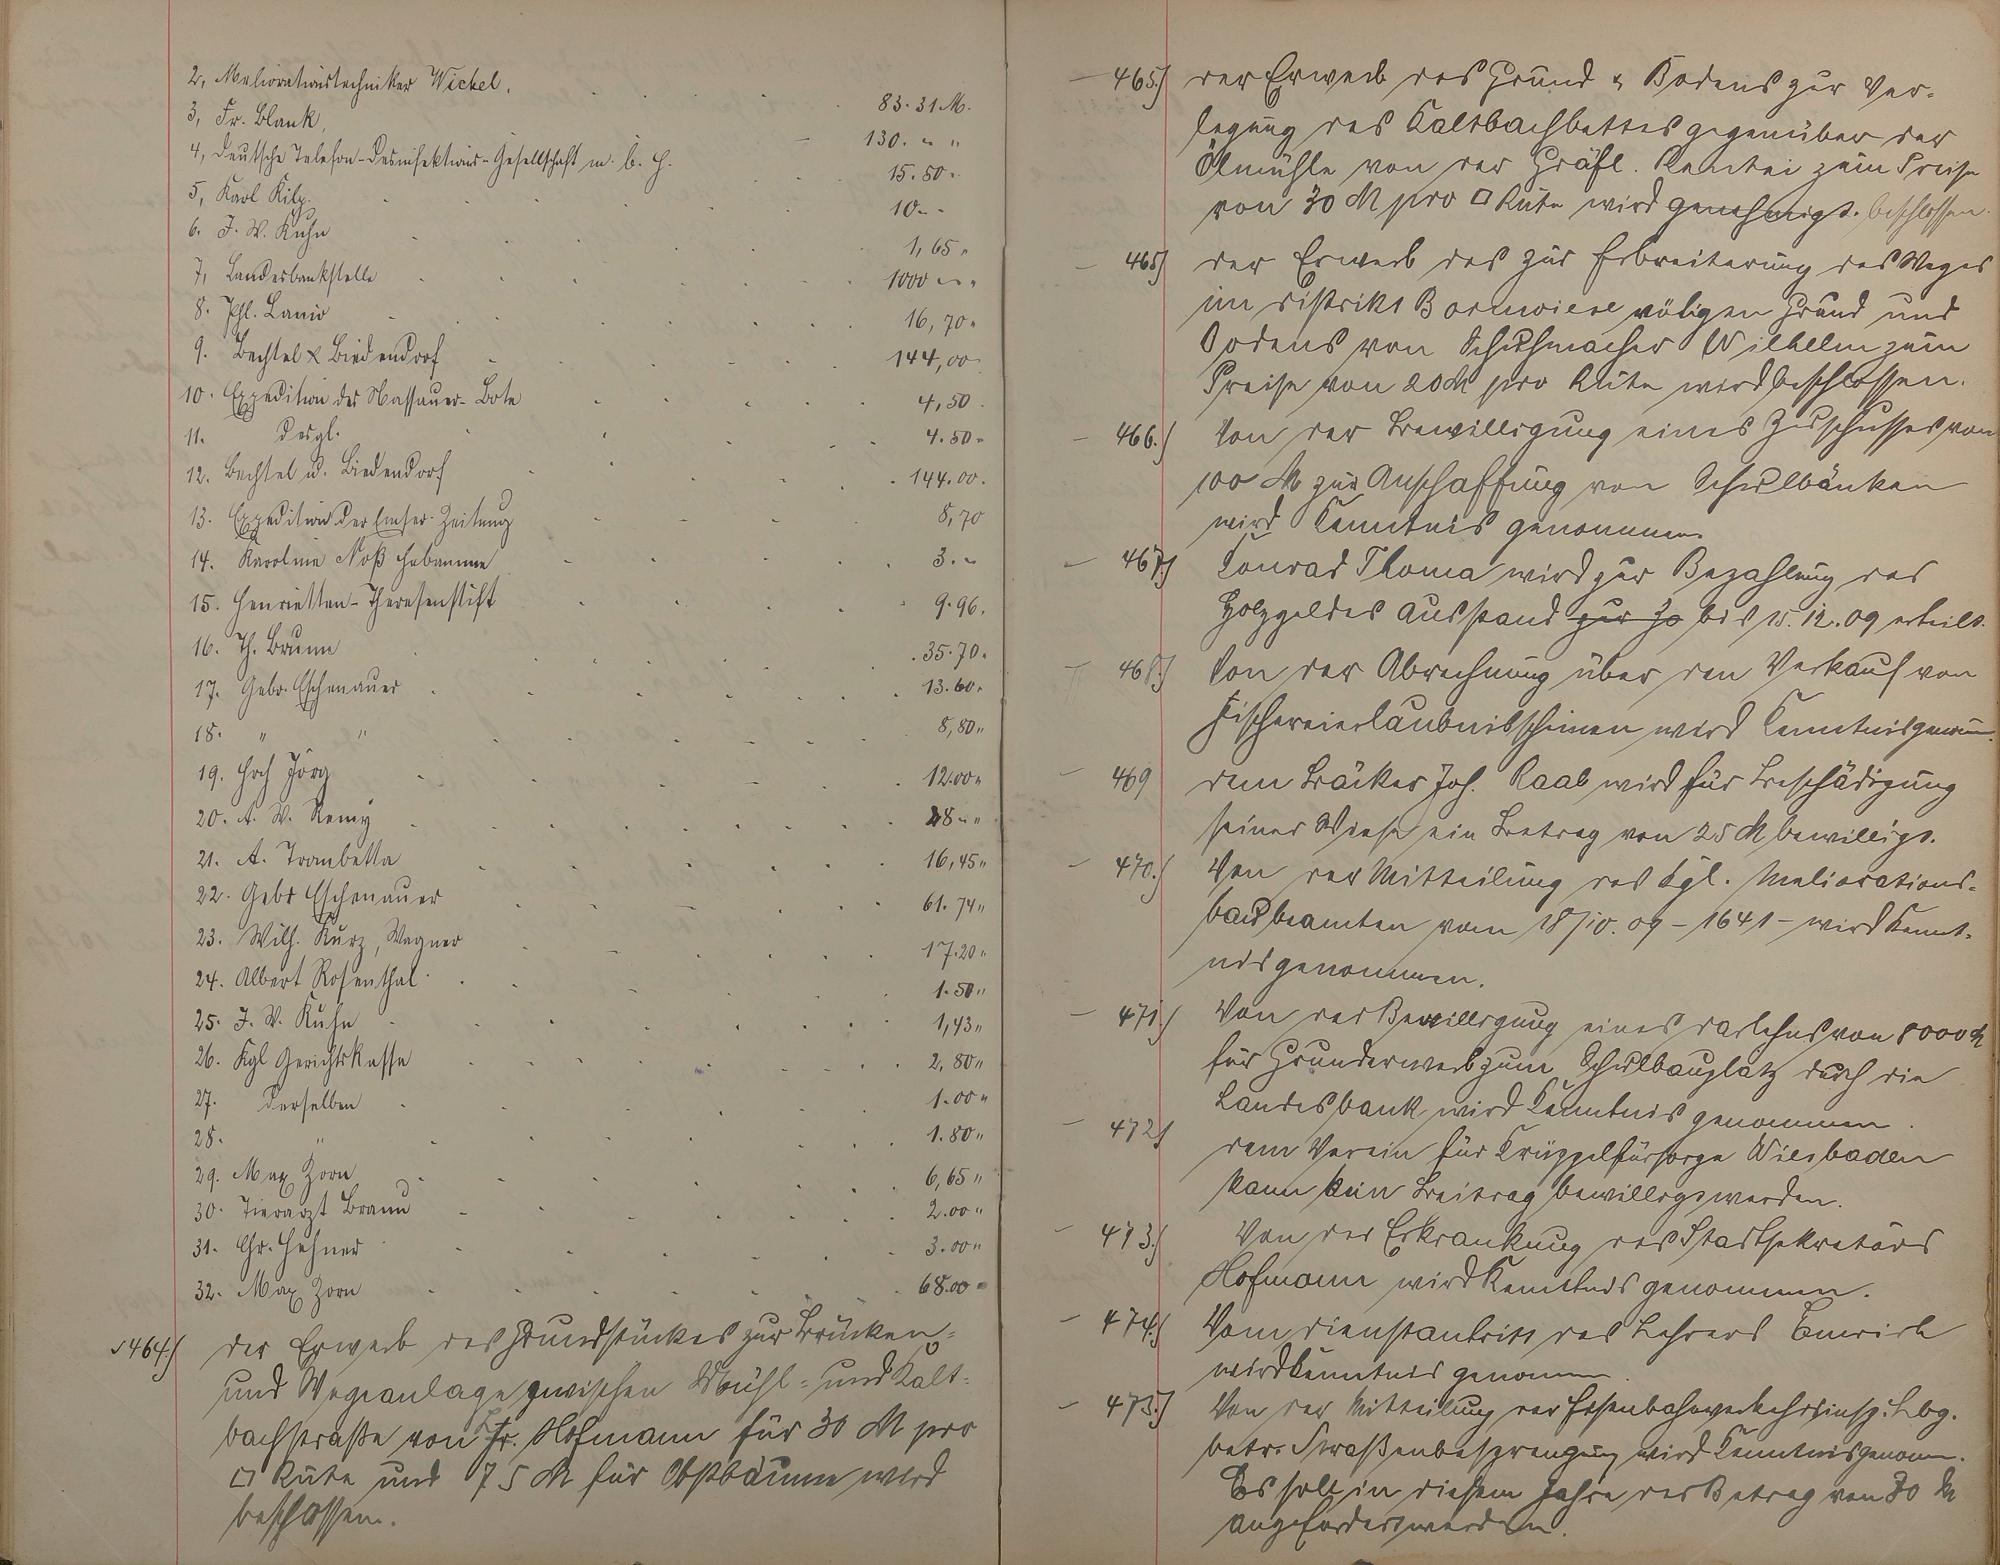 2, Meliorationstechniker Wickel. 83.31 M.
3, Fr. Blank, 130. " "
4, Deutsche Telefon-Desinfektions-Gesellschaft m. b. H. 15.50.
5, Karl Kilp. 10.-
6. J. W. Kuhn 1,65 "
7, Landesbankstelle 1000 "
8. Phl. Lanio 16,70 "
9. Bechtel & Biedendorf 144,00
10. Expedition des Nassauer-Bote 4,50
11. Desgl. 4.50 "
12. Bechtel u. Biedendorf 144.00.
13. Expedition der Emser-Zeitung 8,70
14. Karoline Noß Hebamme 3.-
15. Henrietten-Theresenstift 9.96.
16. Th. Brumm 35.70.
17. Gebr. Eschenauer 13.60.
18. " " 8,80 "
19. Hch Jörg 12.00 "
20. A. W. Remy 28 - "
21. A. Trombetta 16,45 "
22. Gebr Eschenauer 61.74 "
23. Wilh. Kurz, Wagner 17.20 "
24. Albert Rosenthal 1.50 "
25. J. W. Kuhn 1,43 "
26. Kgl Gerichtskasse 2,80 "
27. Derselben 1.00 "
28. " 1.80 "
29. Max Zorn 6,65 "
30. Tierarzt Braun 2.00 "
31. Chr. Hehner 3.00 "
32. Max Zorn 68.00 "
464.) der Erwerb des Grundstückes zur Brücken-
und Wegeanlage zwischen Mühl- und Kalt-
bachstraße von Fr. Hofmann für 30 M pro
□ Rute und 75 M für Obstbäume wird
beschlossen.
465.) der Erwerb des Grund & Bodens zur Ver-
legung des Kaltbachbettes gegenüber der
Ölmühle von der Gräfl. Rentei zum Preise
von 30 M pro □ Rute wird genehmigt. beschlossen.
465) der Erwerb des zur Erbreiterung des Weges
im Distrikt Bornwiese nötigen Grund und
Bodens von Schuhmacher Wilhelm zum
Preise von 20 M pro Rute wird beschlossen.
466.) Von der Bewilligung eines Zuschusses von
100 M zur Anschaffung von Schulbänken
wird Kenntnis genommen.
467.) Konrad Thoma wird zur Bezahlung des
Holzgeldes Ausstand zur Za bis 15.12.09 erteilt.
468.) Von der Abrechnung über den Verkauf von
Fischereierlaubnisscheinen wird Kenntnis genomm.
469 dem Bäcker Joh. Raab wird für Beschädigung
seiner Wiese ein Betrag von 25 M bewilligt.
470.) Von der Mitteilung des Kgl. Meliorations-
baubeamten vom 18/10.09 - 1641 - wird Kennt-
nis genommen.
471.) Von der Bewilligung eines Darlehns von 8000 M
für Grunderwerb zum Schulbauplatz durch die
Landesbank wird Kenntnis genommen.
472) dem Verein für Krüppelfürsorge Wiesbaden
kann kein Beitrag bewilligt werden.
473.) Von der Erkrankung des Stadtsekretärs
Hofmann wird Kenntnis genommen.
474.) Vom Dienstantritt des Lehrers
wird Kenntnis genomm.
475.) Von der Mitteilung der Eisenbahnverkehrsinsp. Lbg.
betr. Straßenbesprengung wird Kenntnis genomm.
Es soll in diesem Jahre der Betrag von 70 M
angefordert werden.